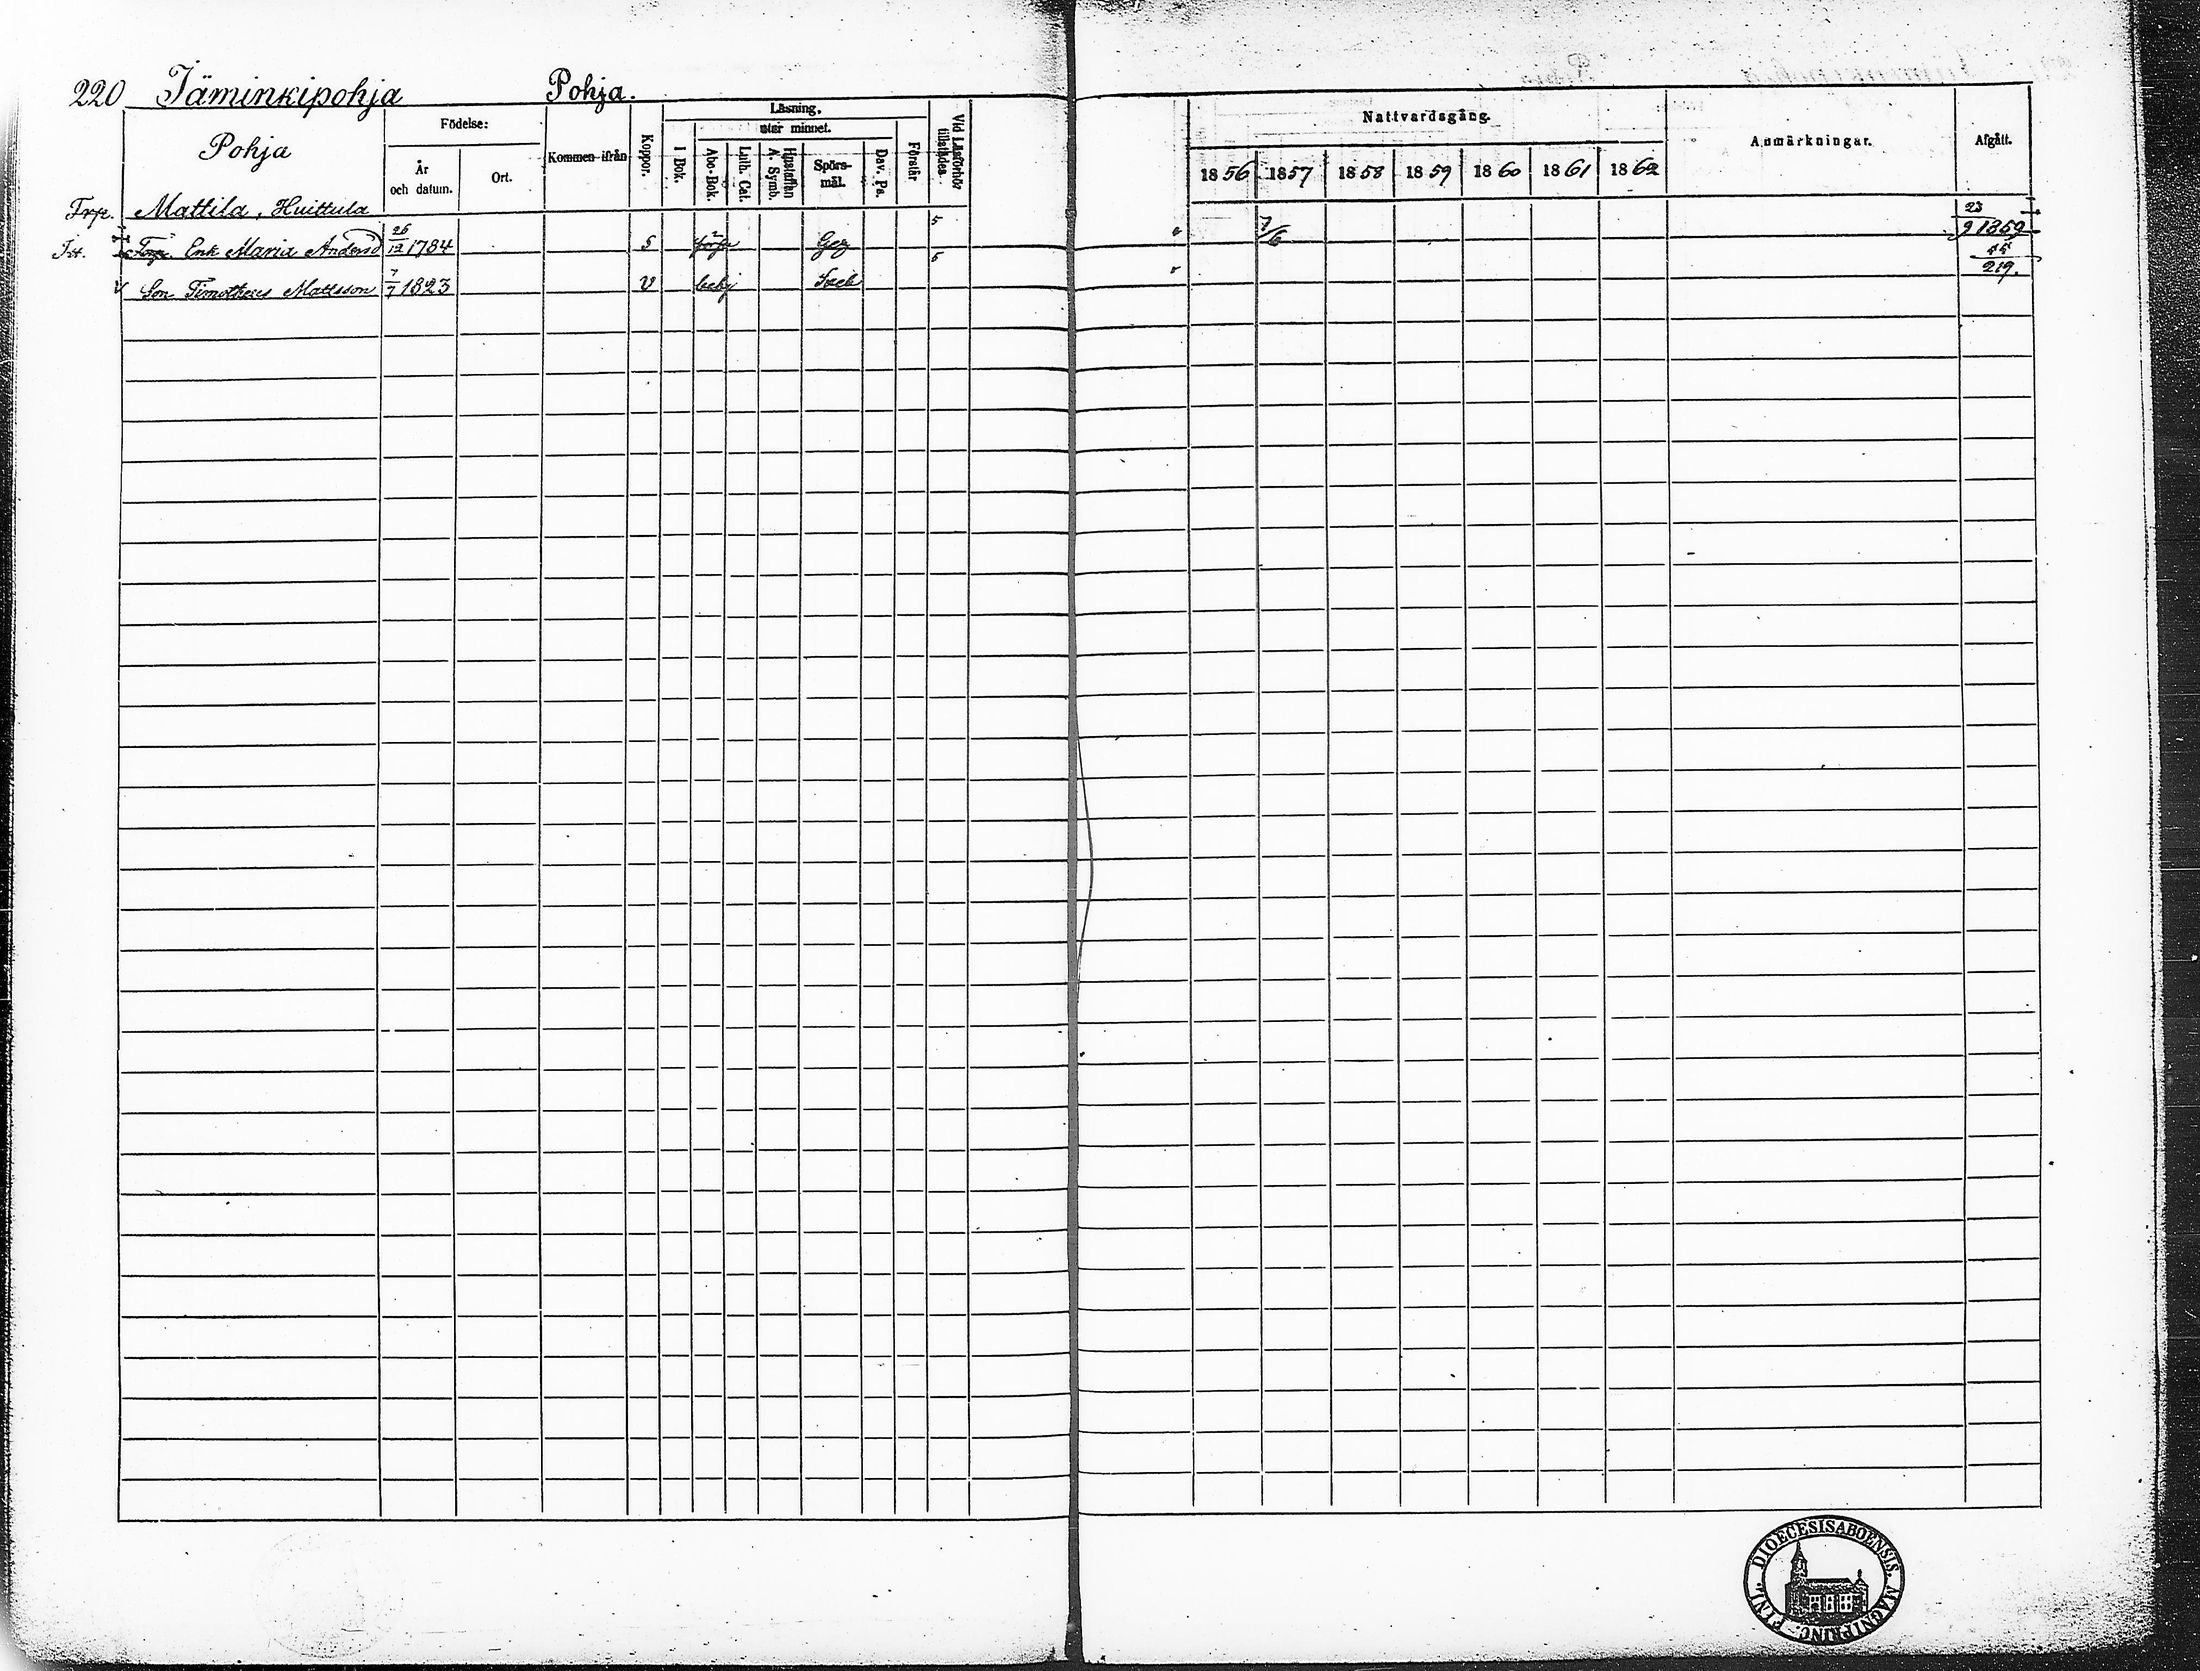 220 Jäminkipohja Pohja.
Pohja
Födelse:
År och datum.
Ort.
Kommen ifrån
Koppor.
Läsning.
utur minnet.
I Bok.
Abc-Bok.
Luth. Cat.
Hustaflan A. Symb.
Spörs-mål.
Dav. Ps.
Förstår
Vid Läsförhör tillstädes
Nattvardsgång.
1856 1857 1858 1859 1860 1861 1862
Anmärkningar.
Afgått.
Trp. Mattila, Huittula
Enk Maria Andersd 26/12 1784 5 Geg 5 7/6 23/9 1859
v Son Timotheus Mattsson 7/7 1823 v 5 219.
FINL. DIOECESIS ABOENSIS. MAGNI PRINC.